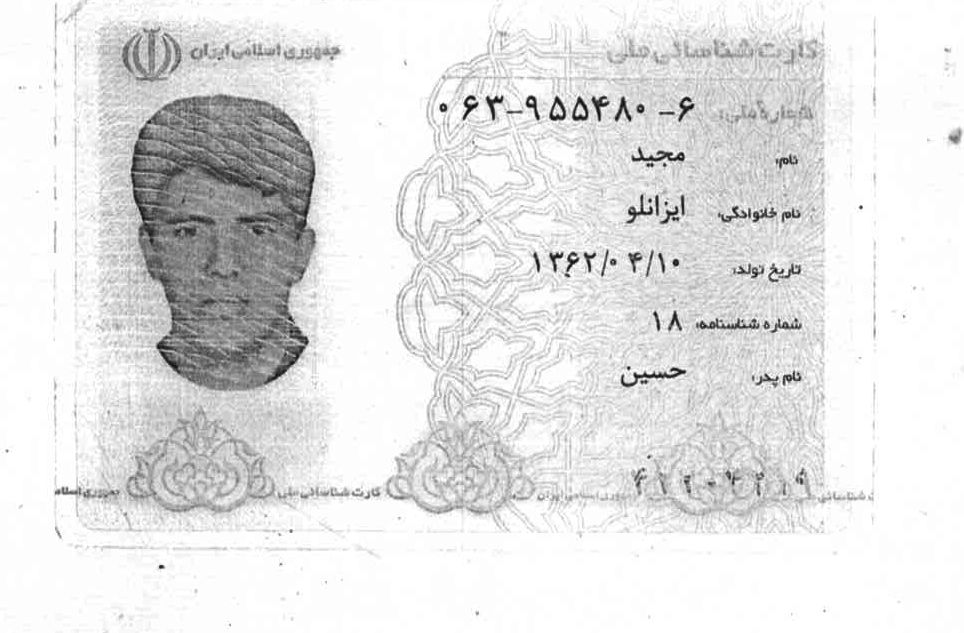 کارت شناسائی ملی
جمهوری اسلامی ایران
شماره ملی: ۰۶۳-۹۵۵۴۸۰-۶
نام: مجید
نام خانوادگی: ایزانلو
تاریخ تولد: ۱۳۶۲/۰۴/۱۰
شماره شناسنامه: ۱۸
نام پدر: حسین
جمهوری اسلامی ایران کارت شناسائی ملی